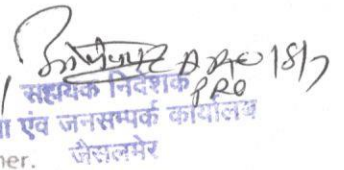 18/7
सहायक निदेशक
PRO
ा एंव जनसम्पर्क कार्यालय
जैसलमेर
ner.